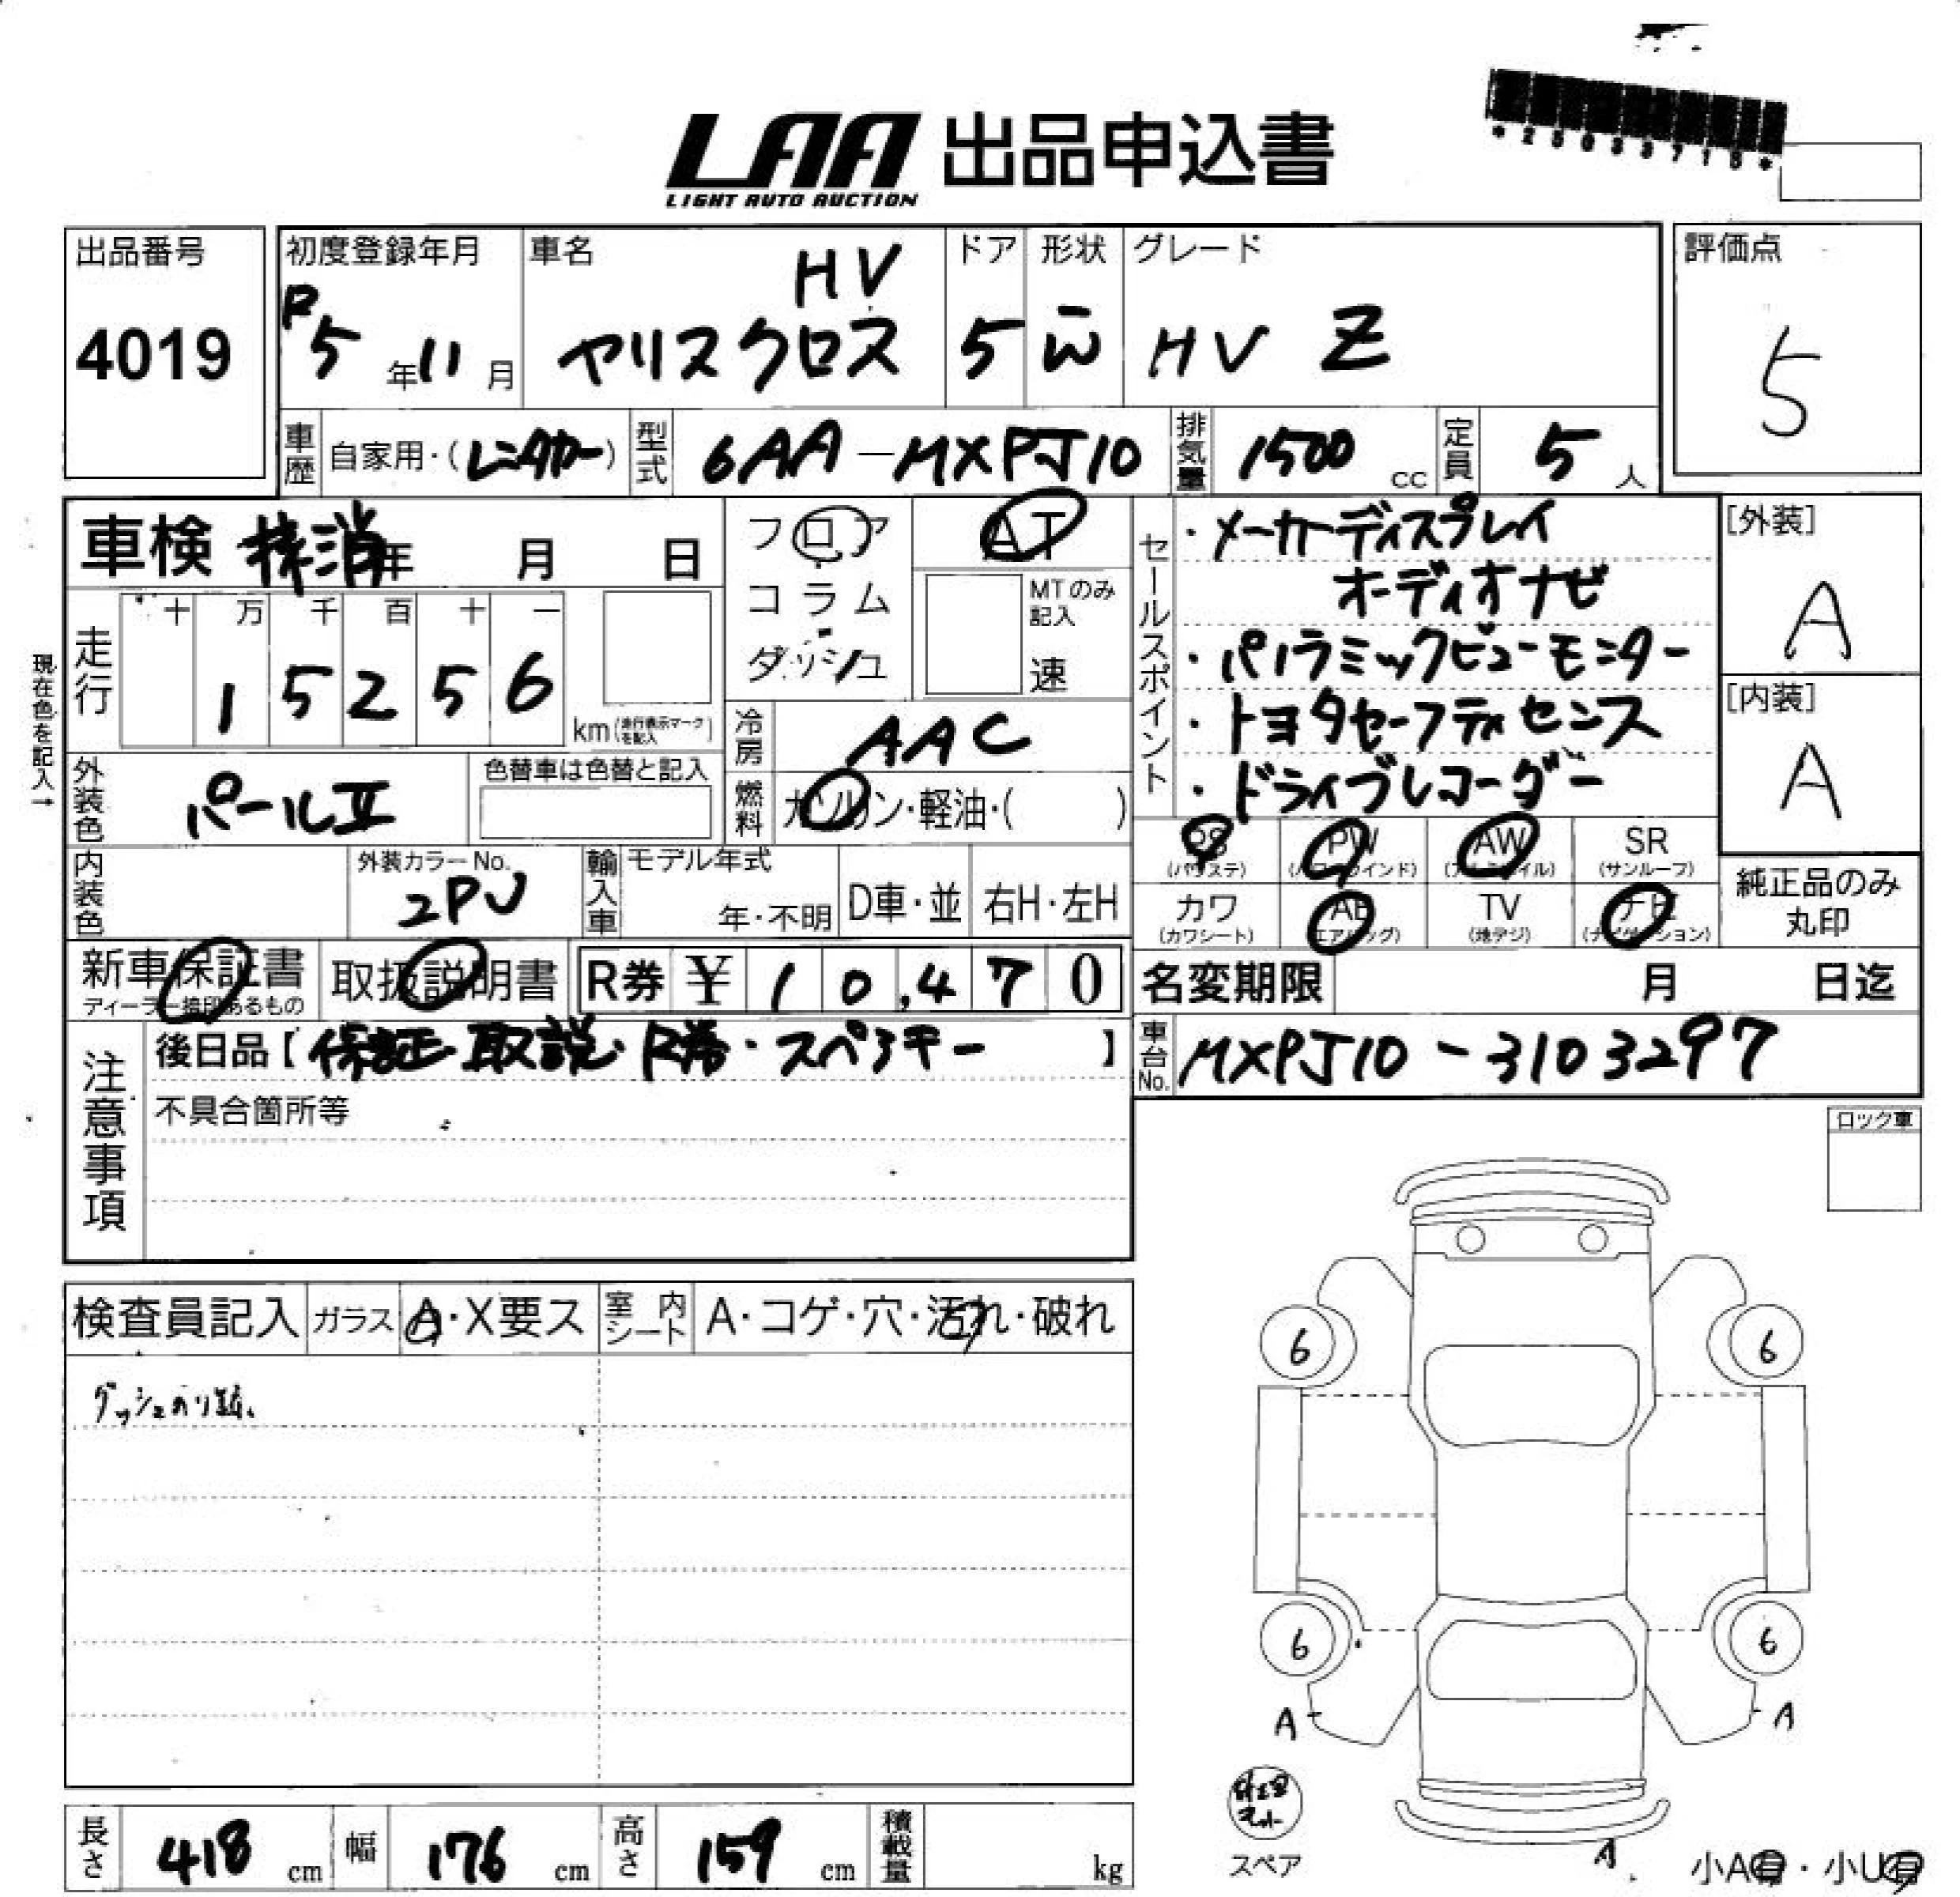 LAA 出品申込書
LIGHT AUTO AUCTION
出品番号
4019
初度登録年月
R5年11月
車名
HV
ヤリスクロス
ドア
5
形状
W
グレード
HV Z
評価点
5
車歴 自家用・(レンタカー)
型式 6AA-MXPJ10
排気量 1500 cc
定員 5 人
車検 抹消 年 月 日
フロア
コラム
ダッシュ
AT
MTのみ記入
速
セールスポイント
・メーカーディスプレイ
オーディオナビ
・パノラミックビューモニター
・トヨタセーフティセンス
・ドライブレコーダー
[外装]
A
[内装]
A
現在色を記入→
走行
十 万 千 百 十 一
1 5 2 5 6
km(走行表示マークを記入)
冷房 AAC
燃料 ガソリン・軽油・( )
外装色 パールⅡ
色替車は色替と記入
内装色
外装カラーNo.
2PU
輸入車
モデル年式
年・不明
D車・並
右H・左H
PS (パワステ)
PW (パワーウインド)
AW (アルミホイル)
SR (サンルーフ)
カワ (カワシート)
AB (エアバッグ)
TV (地デジ)
ナビ (ナビゲーション)
純正品のみ
丸印
新車保証書
ディーラー捺印あるもの
取扱説明書
R券 ¥ 10,470
名変期限 月 日迄
車台No. MXPJ10-3103297
注意事項
後日品【保証・取説・R券・スペアキー】
不具合箇所等
ロック車
検査員記入
ガラス A・X要ス
室内シート A・コゲ・穴・汚れ・破れ
ダッシュのり跡、
6
6
6
6
A
A
A
スペア
小A有・小U有
長さ 418 cm
幅 176 cm
高さ 159 cm
積載量 kg